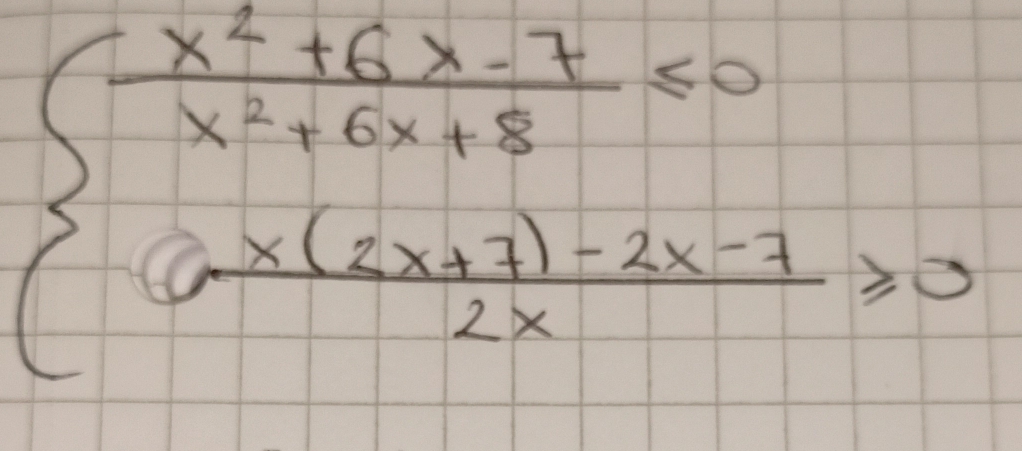 x² + 6x - 7
x² + 6x + 8
≤ 0
x(2x+7) - 2x - 7
2x
≥ 0